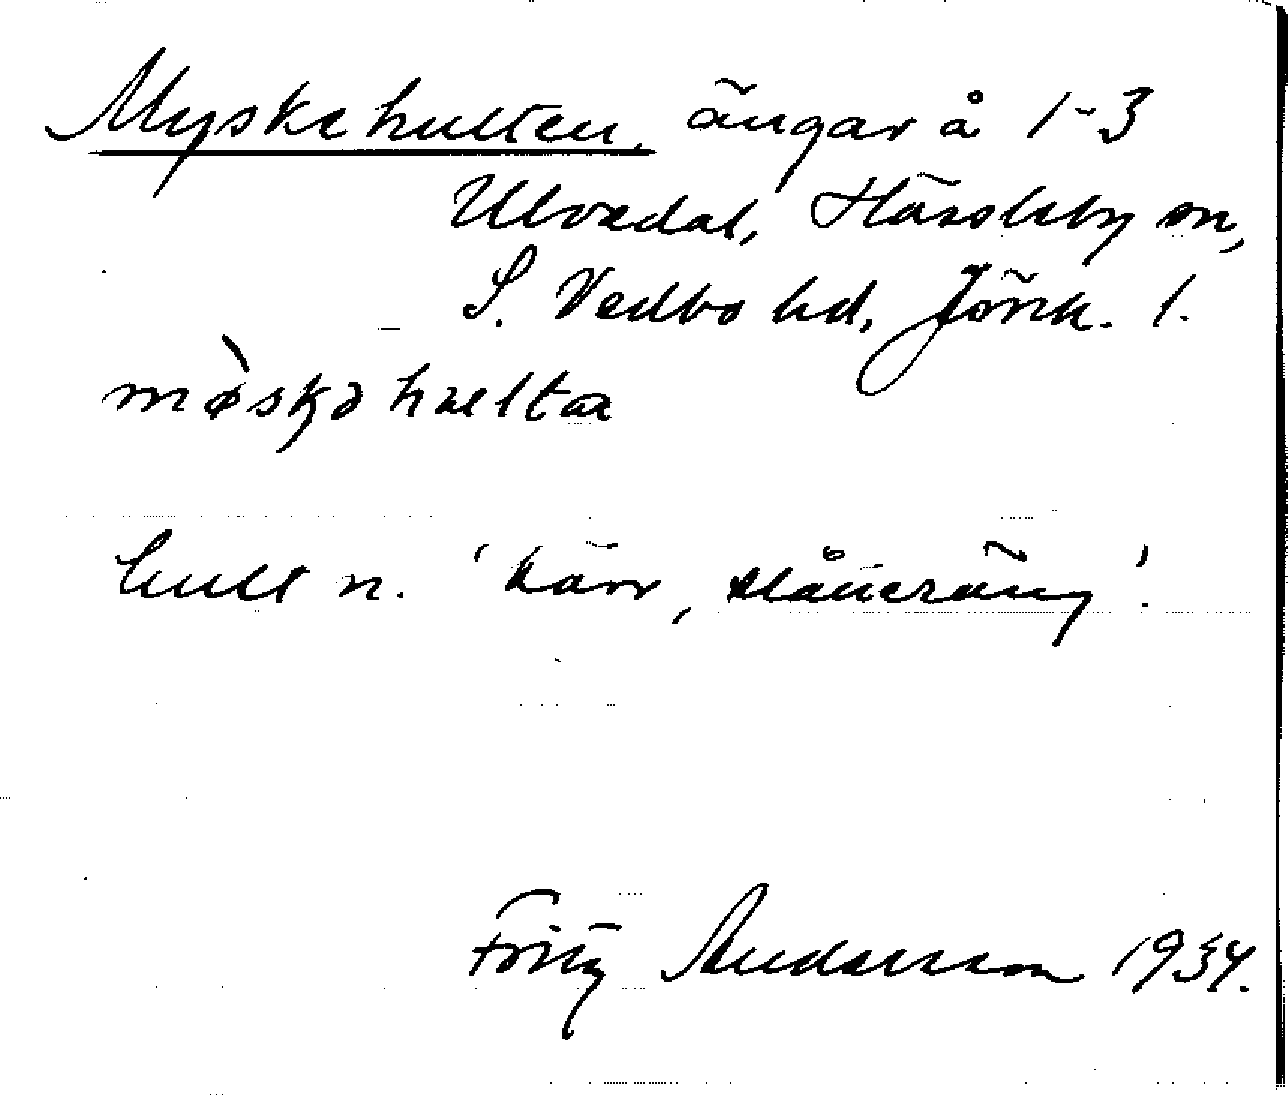 Myskehulten, ängar å 1-3
Ulvedal, Hässleby sn,
S. Vedbo hd, Jönk. l.
mø̀skəhulta
hult n. 'kärr, slåtteräng'.
Fritz Andersson 1934.